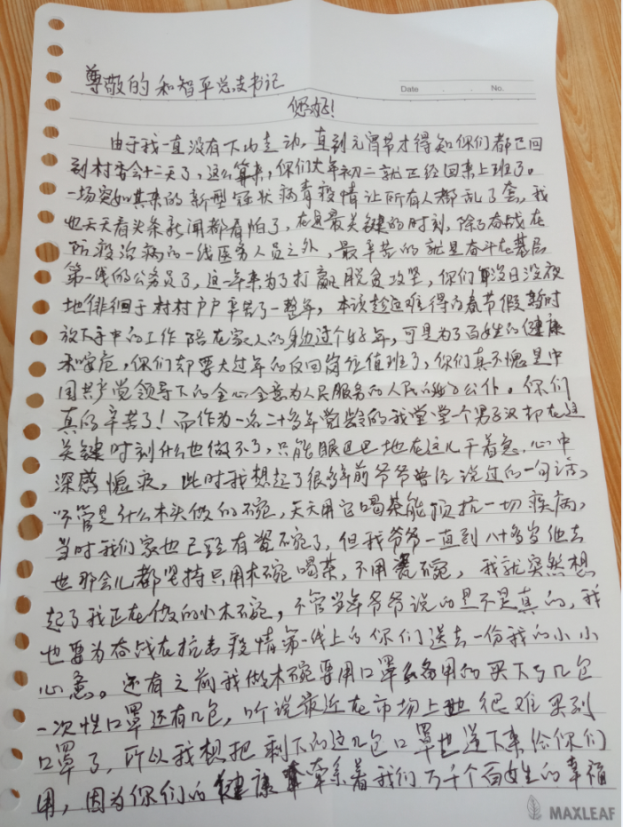 尊敬的和智平总支书记
Date . . No.
您好!
由于我一直没有下山走动,直到元宵节才得知你们都已回
到村委会十二天了,这么算来,你们大年初二就已经回来上班了。
一场突如其来的新型冠状病毒疫情让所有人都乱了套,我
也天天看头条新闻都看怕了,在这最关键的时刻,除了奋战在
防疫治病的一线医务人员之外,最辛苦的就是奋斗在基层
第一线的公务员了,这一年来为了打赢脱贫攻坚,你们没日没夜
地徘徊于村村户户辛苦了一整年,本该趁这难得的春节假暂时
放下手中的工作陪在家人的身边过个好年,可是为了百姓的健康
和安危,你们却要大过年的反回岗位值班了,你们真不愧是中
国共产党领导下的全心全意为人民服务的人民的好公仆。你们
真的辛苦了!而作为一名二十多年党龄的我堂堂一个男子汉却在这
关键时刻什么也做不了,只能眼巴巴地在这儿干着急,心中
深感愧疚,此时我想起了很多年前爷爷曾经说过的一句话,
"不管是什么木头做的木碗,天天用它喝茶能预抗一切疾病,
当时我们家也已经有瓷碗了,但我爷爷一直到八十多岁他去
世那会儿都坚持只用木碗喝茶,不用瓷碗,我就突然想
起了我正在做的小木碗,不管当年爷爷说的是不是真的,我
也要为奋战在抗击疫情第一线上的你们送去一份我的小小
心意。还有之前我做木碗要用口罩备用的买下了几包
一次性口罩还有几包,听说最近在市场上也很难买到
口罩了,所以我想把剩下的这几包口罩也送下来给你们
用,因为你们的健康牵系着我们万千个百姓的幸福
MAXLEAF